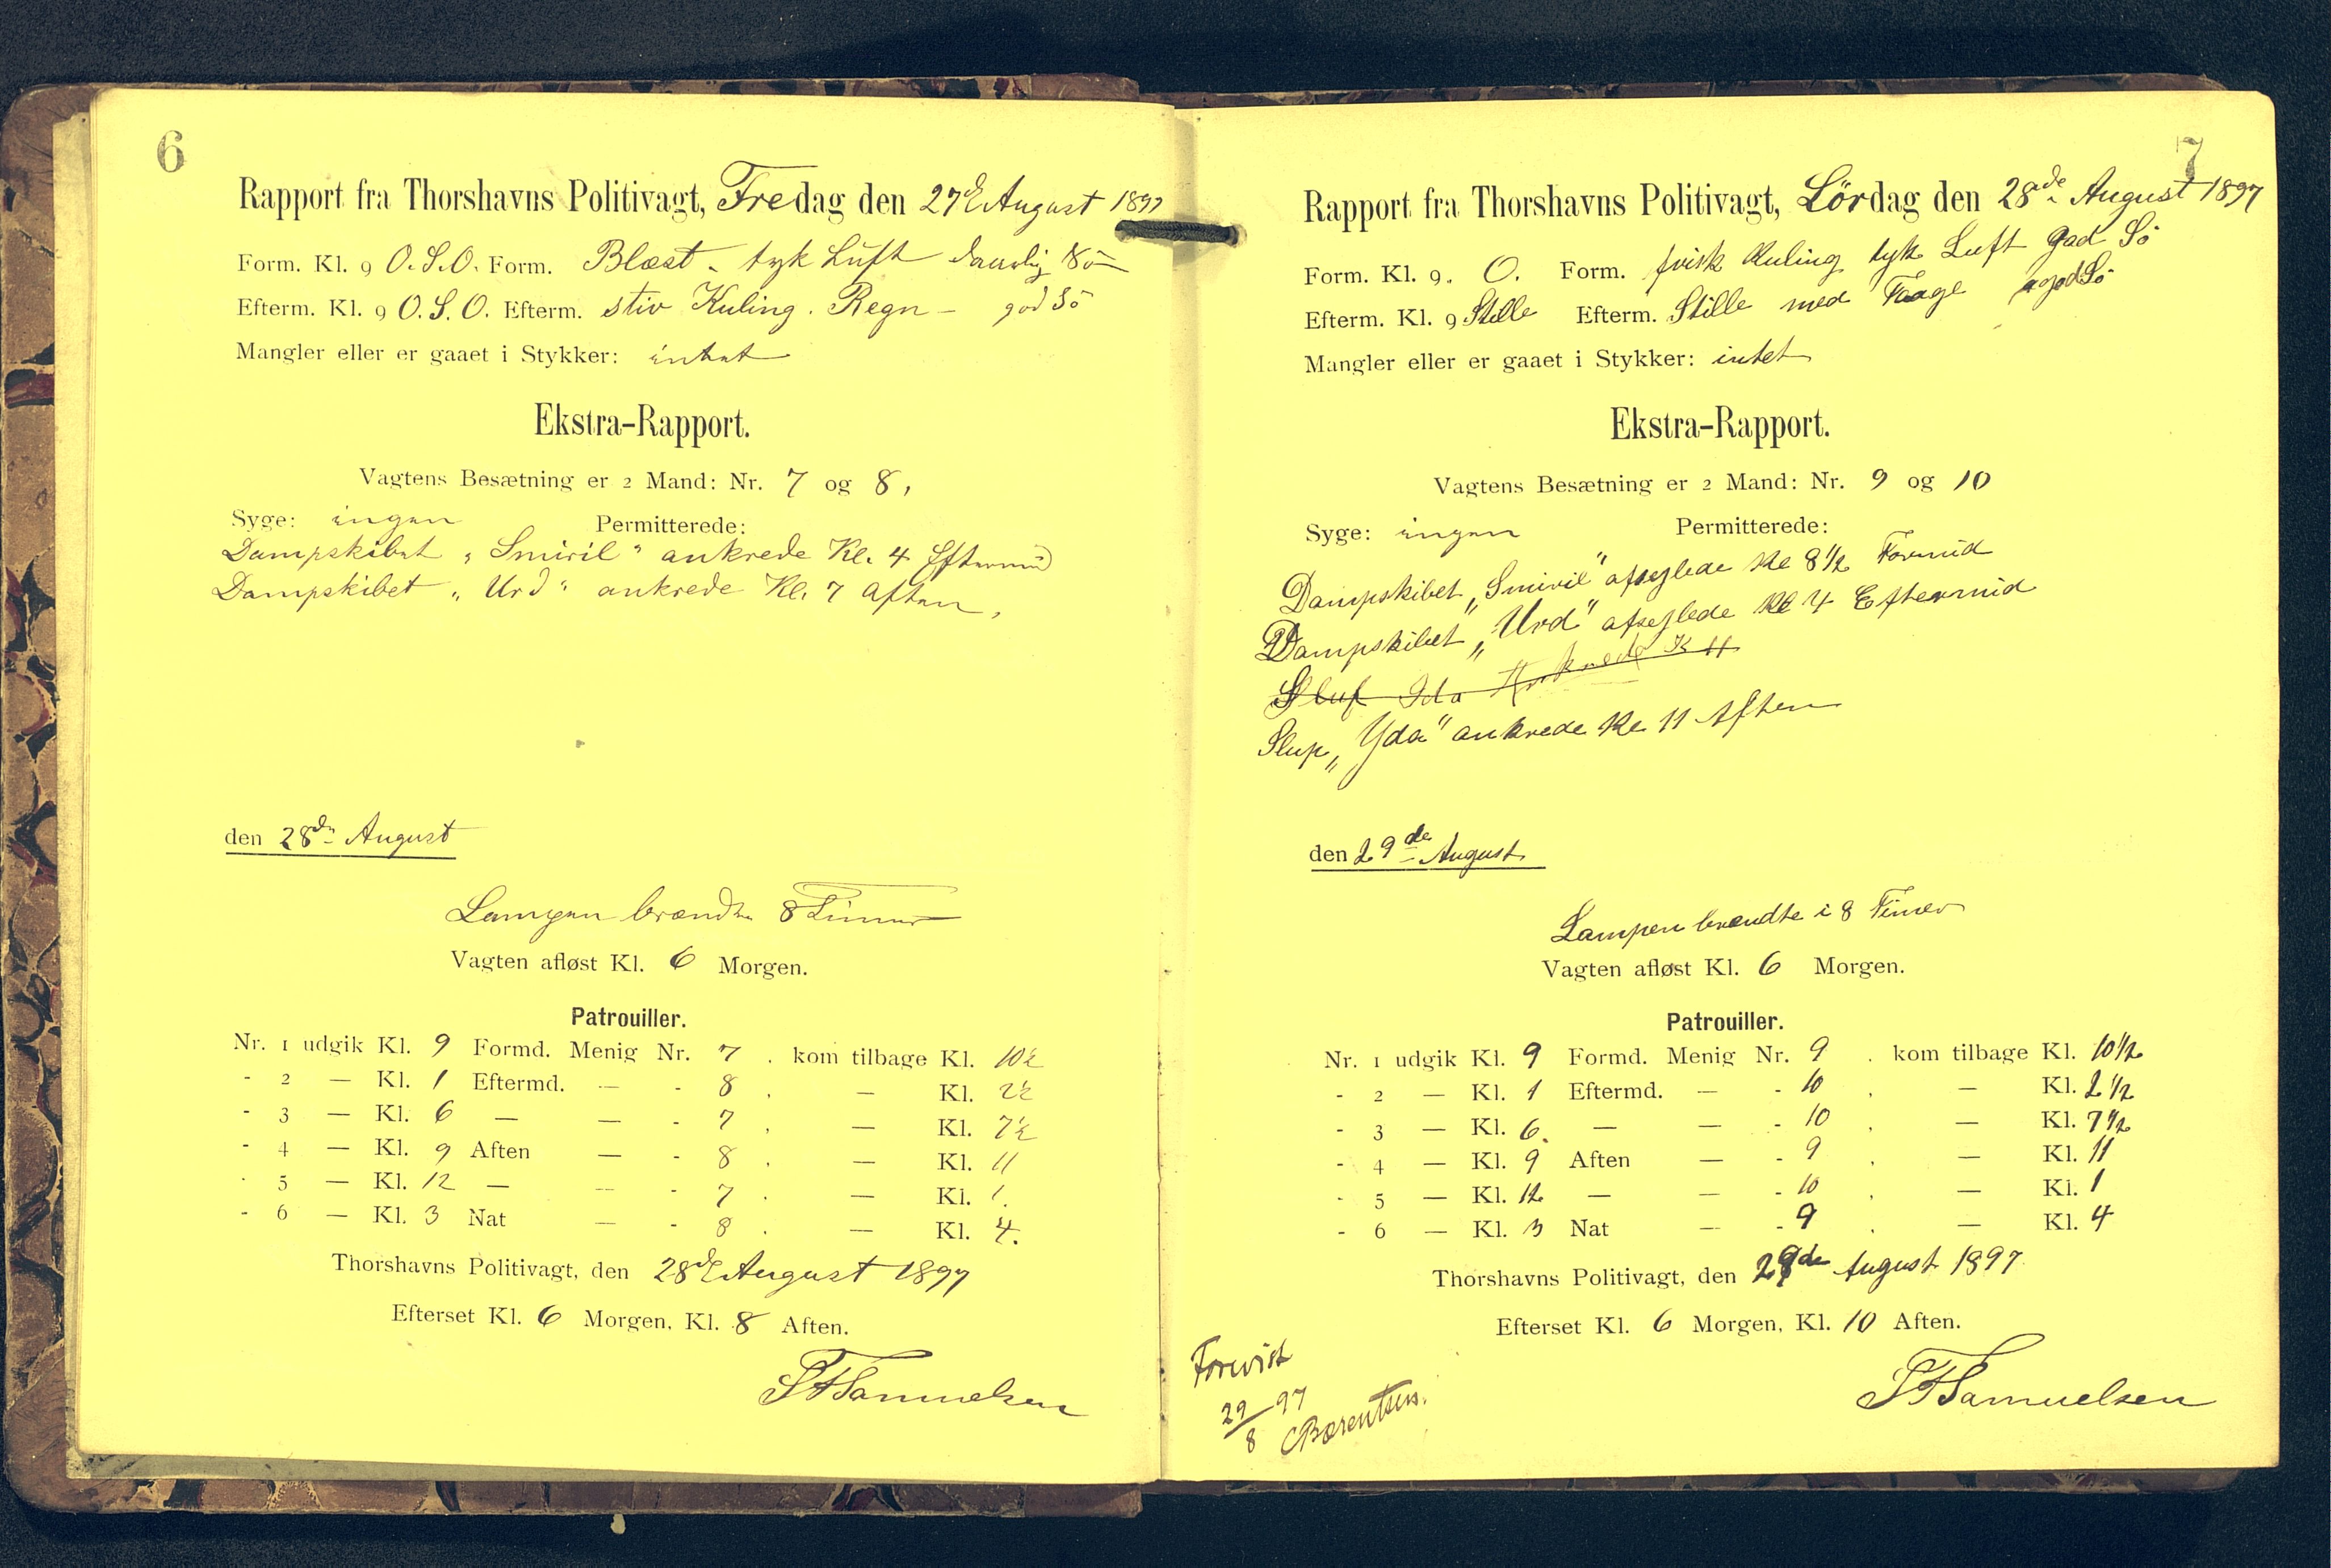 6
Rapport fra Thorshavns Politivagt, Fredag den 27de August 1897
Form. Kl. 9 O.S.O. Form. Blæst. tyk Luft daarlig Sö
Efterm. Kl. 9 O.S.O. Efterm. stiv Kuling. Regn - god Sö
Mangler eller er gaaet i Stykker: intet
Ekstra-Rapport.
Vagtens Besætning er 2 Mand: Nr. 7 og 8,
Syge: ingen Permitterede:
Dampskibet „Smiril" ankrede Kl. 4 Eftermid
Dampskibet „Urd" ankrede Kl. 7 Aften,
den 28de August
Lampen brændte 8 Timer
Vagten afløst Kl. 6 Morgen.
Patrouiller.
Nr. 1 udgik Kl. 9 Formd. Menig Nr. 7 . kom tilbage Kl. 10½
- 2 — Kl. 1 Eftermd. — - 8 . — Kl. 2½
- 3 — Kl. 6 — — - 7 . — Kl. 7½
- 4 — Kl. 9 Aften — - 8 . — Kl. 11
- 5 — Kl. 12 — — - 7 . — Kl. 1.
- 6 — Kl. 3 Nat — - 8 . — Kl. 4.
Thorshavns Politivagt, den 28de August 1897
Efterset Kl. 6 Morgen, Kl. 8 Aften.
Samuelsen
7
Rapport fra Thorshavns Politivagt, Lördag den 28de August 1897
Form. Kl. 9. O. Form. frisk Kuling tyk Luft god Sö
Efterm. Kl. 9 Stille Efterm. Stille med Taage god Sö
Mangler eller er gaaet i Stykker: intet
Ekstra-Rapport.
Vagtens Besætning er 2 Mand: Nr. 9 og 10
Syge: ingen Permitterede:
Dampskibet „Smiril" afsejlede Kl 8½ Formid
Dampskibet „Urd" afsejlede Kl 4 Eftermid
Sluf Ida Ankrede K 11
Slup „Yda" ankrede Kl 11 Aften
den 29de August
Lampen brændte i 8 Timer
Vagten afløst Kl. 6 Morgen.
Patrouiller.
Nr. 1 udgik Kl. 9 Formd. Menig Nr. 9 . kom tilbage Kl. 10½
- 2 — Kl. 1 Eftermd. — - 10 . — Kl. 2½
- 3 — Kl. 6. — — - 10 . — Kl. 7½
- 4 — Kl. 9 Aften — - 9 . — Kl. 11
- 5 — Kl. 12 — — - 10 . — Kl. 1
- 6 — Kl. 3 Nat — - 9 . — Kl. 4
Thorshavns Politivagt, den 29de August 1897
Efterset Kl. 6 Morgen, Kl. 10 Aften.
Samuelsen
Forevist
29/8 97
CBærentsen.